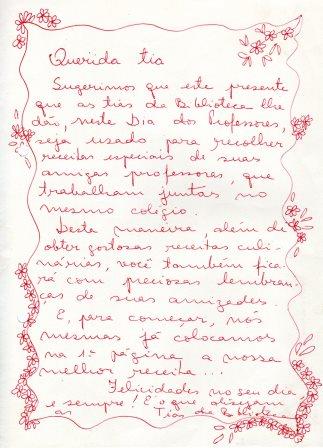 Querida tia
Sugerimos que este presente
que as tias da Biblioteca lhe
dão, neste Dia dos Professores,
seja usado para recolher
receitas especiais de suas
amigas professoras, que
trabalham juntas no
mesmo colégio.
Desta maneira, além de
obter gostosas receitas culi-
nárias, você também fica-
rá com preciosas lembran-
ças de suas amizades.
E, para começar, nós
mesmas já colocamos
na 1ª página, a nossa
melhor receita...
Felicidades no seu dia,
e sempre! É o que desejam
as Tias da Biblioteca